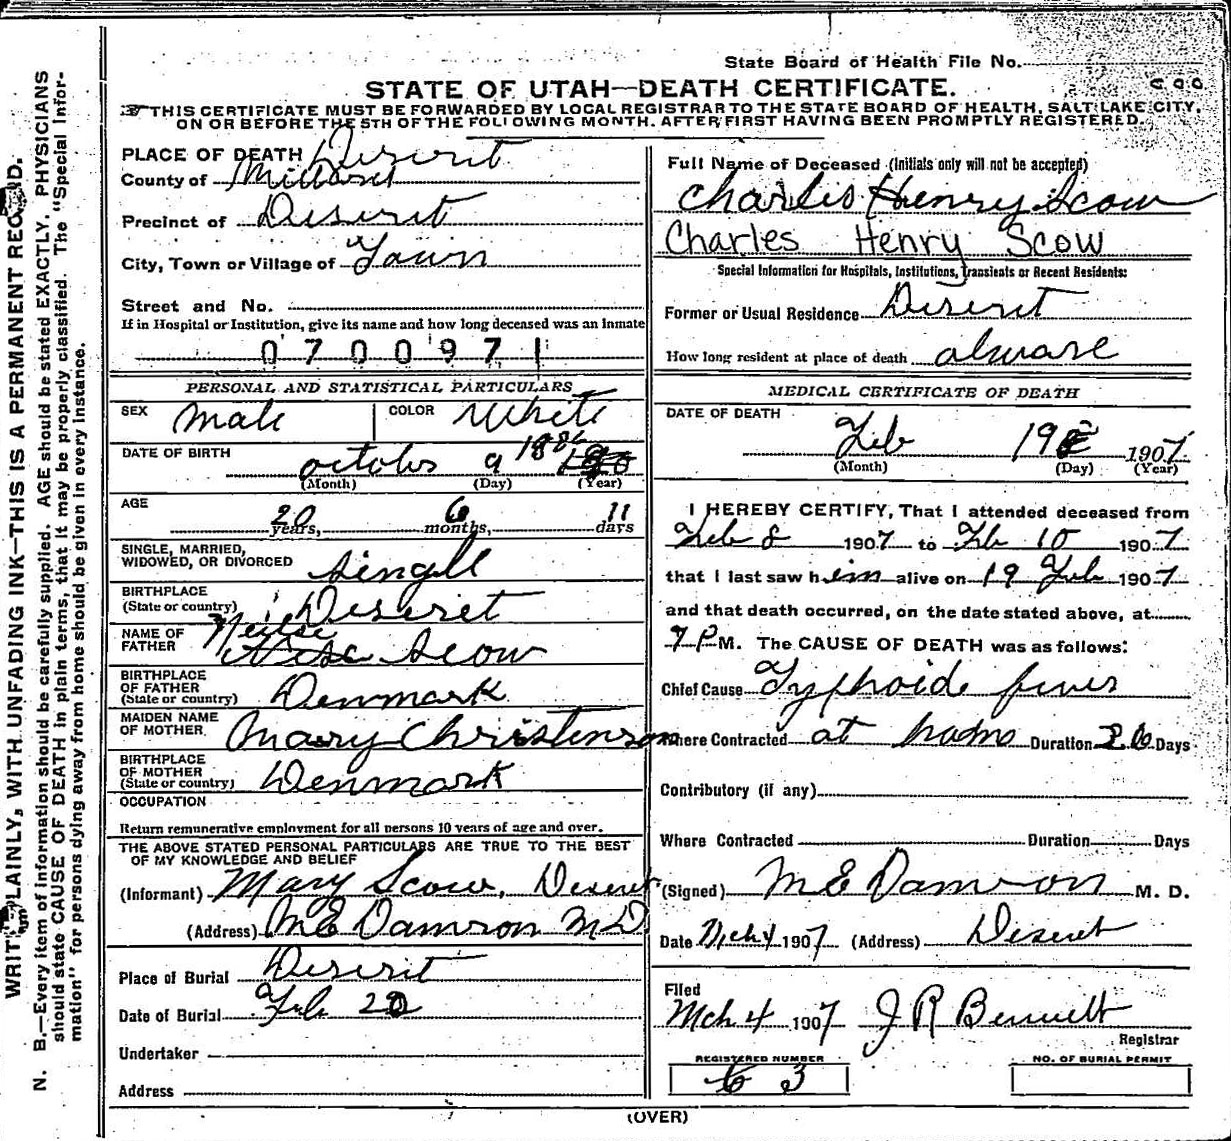 State Board of Health File No.
STATE OF UTAH—DEATH CERTIFICATE.
THIS CERTIFICATE MUST BE FORWARDED BY LOCAL REGISTRAR TO THE STATE BOARD OF HEALTH, SALT LAKE CITY,
ON OR BEFORE THE 5TH OF THE FOLLOWING MONTH. AFTER FIRST HAVING BEEN PROMPTLY REGISTERED.
WRITE PLAINLY, WITH UNFADING INK—THIS IS A PERMANENT RECORD.
N. B.—Every item of information should be carefully supplied. AGE should be stated EXACTLY. PHYSICIANS
should state CAUSE OF DEATH in plain terms, that it may be properly classified. The "Special Infor-
mation" for persons dying away from home should be given in every instance.
PLACE OF DEATH Diserit
County of Millard
Precinct of Diserit
City, Town or Village of Town
Street and No.
If in Hospital or Institution, give its name and how long deceased was an Inmate
0700971
PERSONAL AND STATISTICAL PARTICULARS
SEX male COLOR White
DATE OF BIRTH octobr 9 1886
(Month) (Day) (Year)
AGE
20 years, 6 months, 11 days
SINGLE, MARRIED,
WIDOWED, OR DIVORCED singll
BIRTHPLACE
(State or country) Deseret
NAME OF
FATHER Scow
BIRTHPLACE
OF FATHER
(State or country) Denmark
MAIDEN NAME
OF MOTHER Mary Christenson
BIRTHPLACE
OF MOTHER
(State or country) Denmark
OCCUPATION
Return remunerative employment for all persons 10 years of age and over.
THE ABOVE STATED PERSONAL PARTICULARS ARE TRUE TO THE BEST
OF MY KNOWLEDGE AND BELIEF
(Informant) Mary Scow, Deseret
(Address) M E Damron M D
Place of Burial Diserit
Date of Burial Feb 20
Undertaker
Address
Full Name of Deceased (Initials only will not be accepted)
Charlis Henry Scow
Charles Henry Scow
Special Information for Hospitals, Institutions, Transients or Recent Residents:
Former or Usual Residence Diserit
How long resident at place of death alware
MEDICAL CERTIFICATE OF DEATH
DATE OF DEATH
Feb 19 1907
(Month) (Day) (Year)
I HEREBY CERTIFY, That I attended deceased from
Feb 8 1907 to Feb 10 1907
that I last saw him alive on 19 Feb 1907
and that death occurred, on the date stated above, at
7 P M. The CAUSE OF DEATH was as follows:
Chief Cause Typhoide fever
Where Contracted at Duration 26 Days
Contributory (if any)
Where Contracted Duration Days
(Signed) M E Damron M. D.
Date Mch 4 1907 (Address) Deseret
Filed
Mch 4 1907 J R Bennett
Registrar
REGISTERED NUMBER
3
NO. OF BURIAL PERMIT
(OVER)